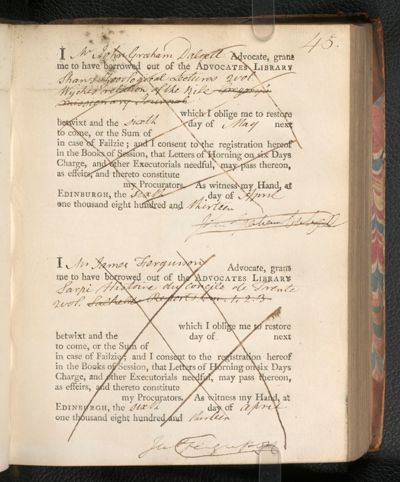 45.
I Mr John Graham Dalyell Advocate, grant
me to have borrowed out of the ADVOCATES LIBRARY
Shaw's Zoological Lectures 2 vol
relation of the Nile
missionary Journal
which I oblige me to restore
betwixt and the sixth day of May next
to come, or the Sum of
in case of Failzie; and I consent to the registration hereof
in the Books of Session, that Letters of Horning on six Days
Charge, and other Executorials needful, may pass thereon,
as effeirs, and thereto constitute
my Procurators. As witness my Hand, at
EDINBURGH, the sixth day of April
one thousand eight hundred and thirteen
John Graham Dalyell
I Mr James Ferguson Advocate, grant
me to have borrowed out of the ADVOCATES LIBRARY
Sarpi Histoire du concile de Trente
2 vol. Reports 1. 2. 3
which I oblige me to restore
betwixt and the day of next
to come, or the Sum of
in case of Failzie; and I consent to the registration hereof
in the Books of Session, that Letters of Horning on six Days
Charge, and other Executorials needful, may pass thereon,
as effeirs, and thereto constitute
my Procurators. As witness my Hand, at
EDINBURGH, the sixth day of April
one thousand eight hundred and thirteen
Ja Ferguson